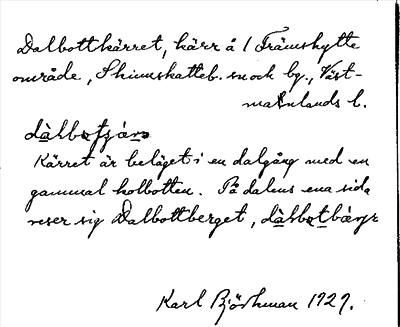 Dalbottkärret, kärr å 1 Främshytte
område, Skinnskatteb. snock bg., Väst-
manlands l.
dàlbotçärə
Kärret är beläget i en dalgång med en
gammal kolbotten. På dalens ena sida
reser sig Dalbottberget, dàlbotbærjə
Karl Björkman 1927.